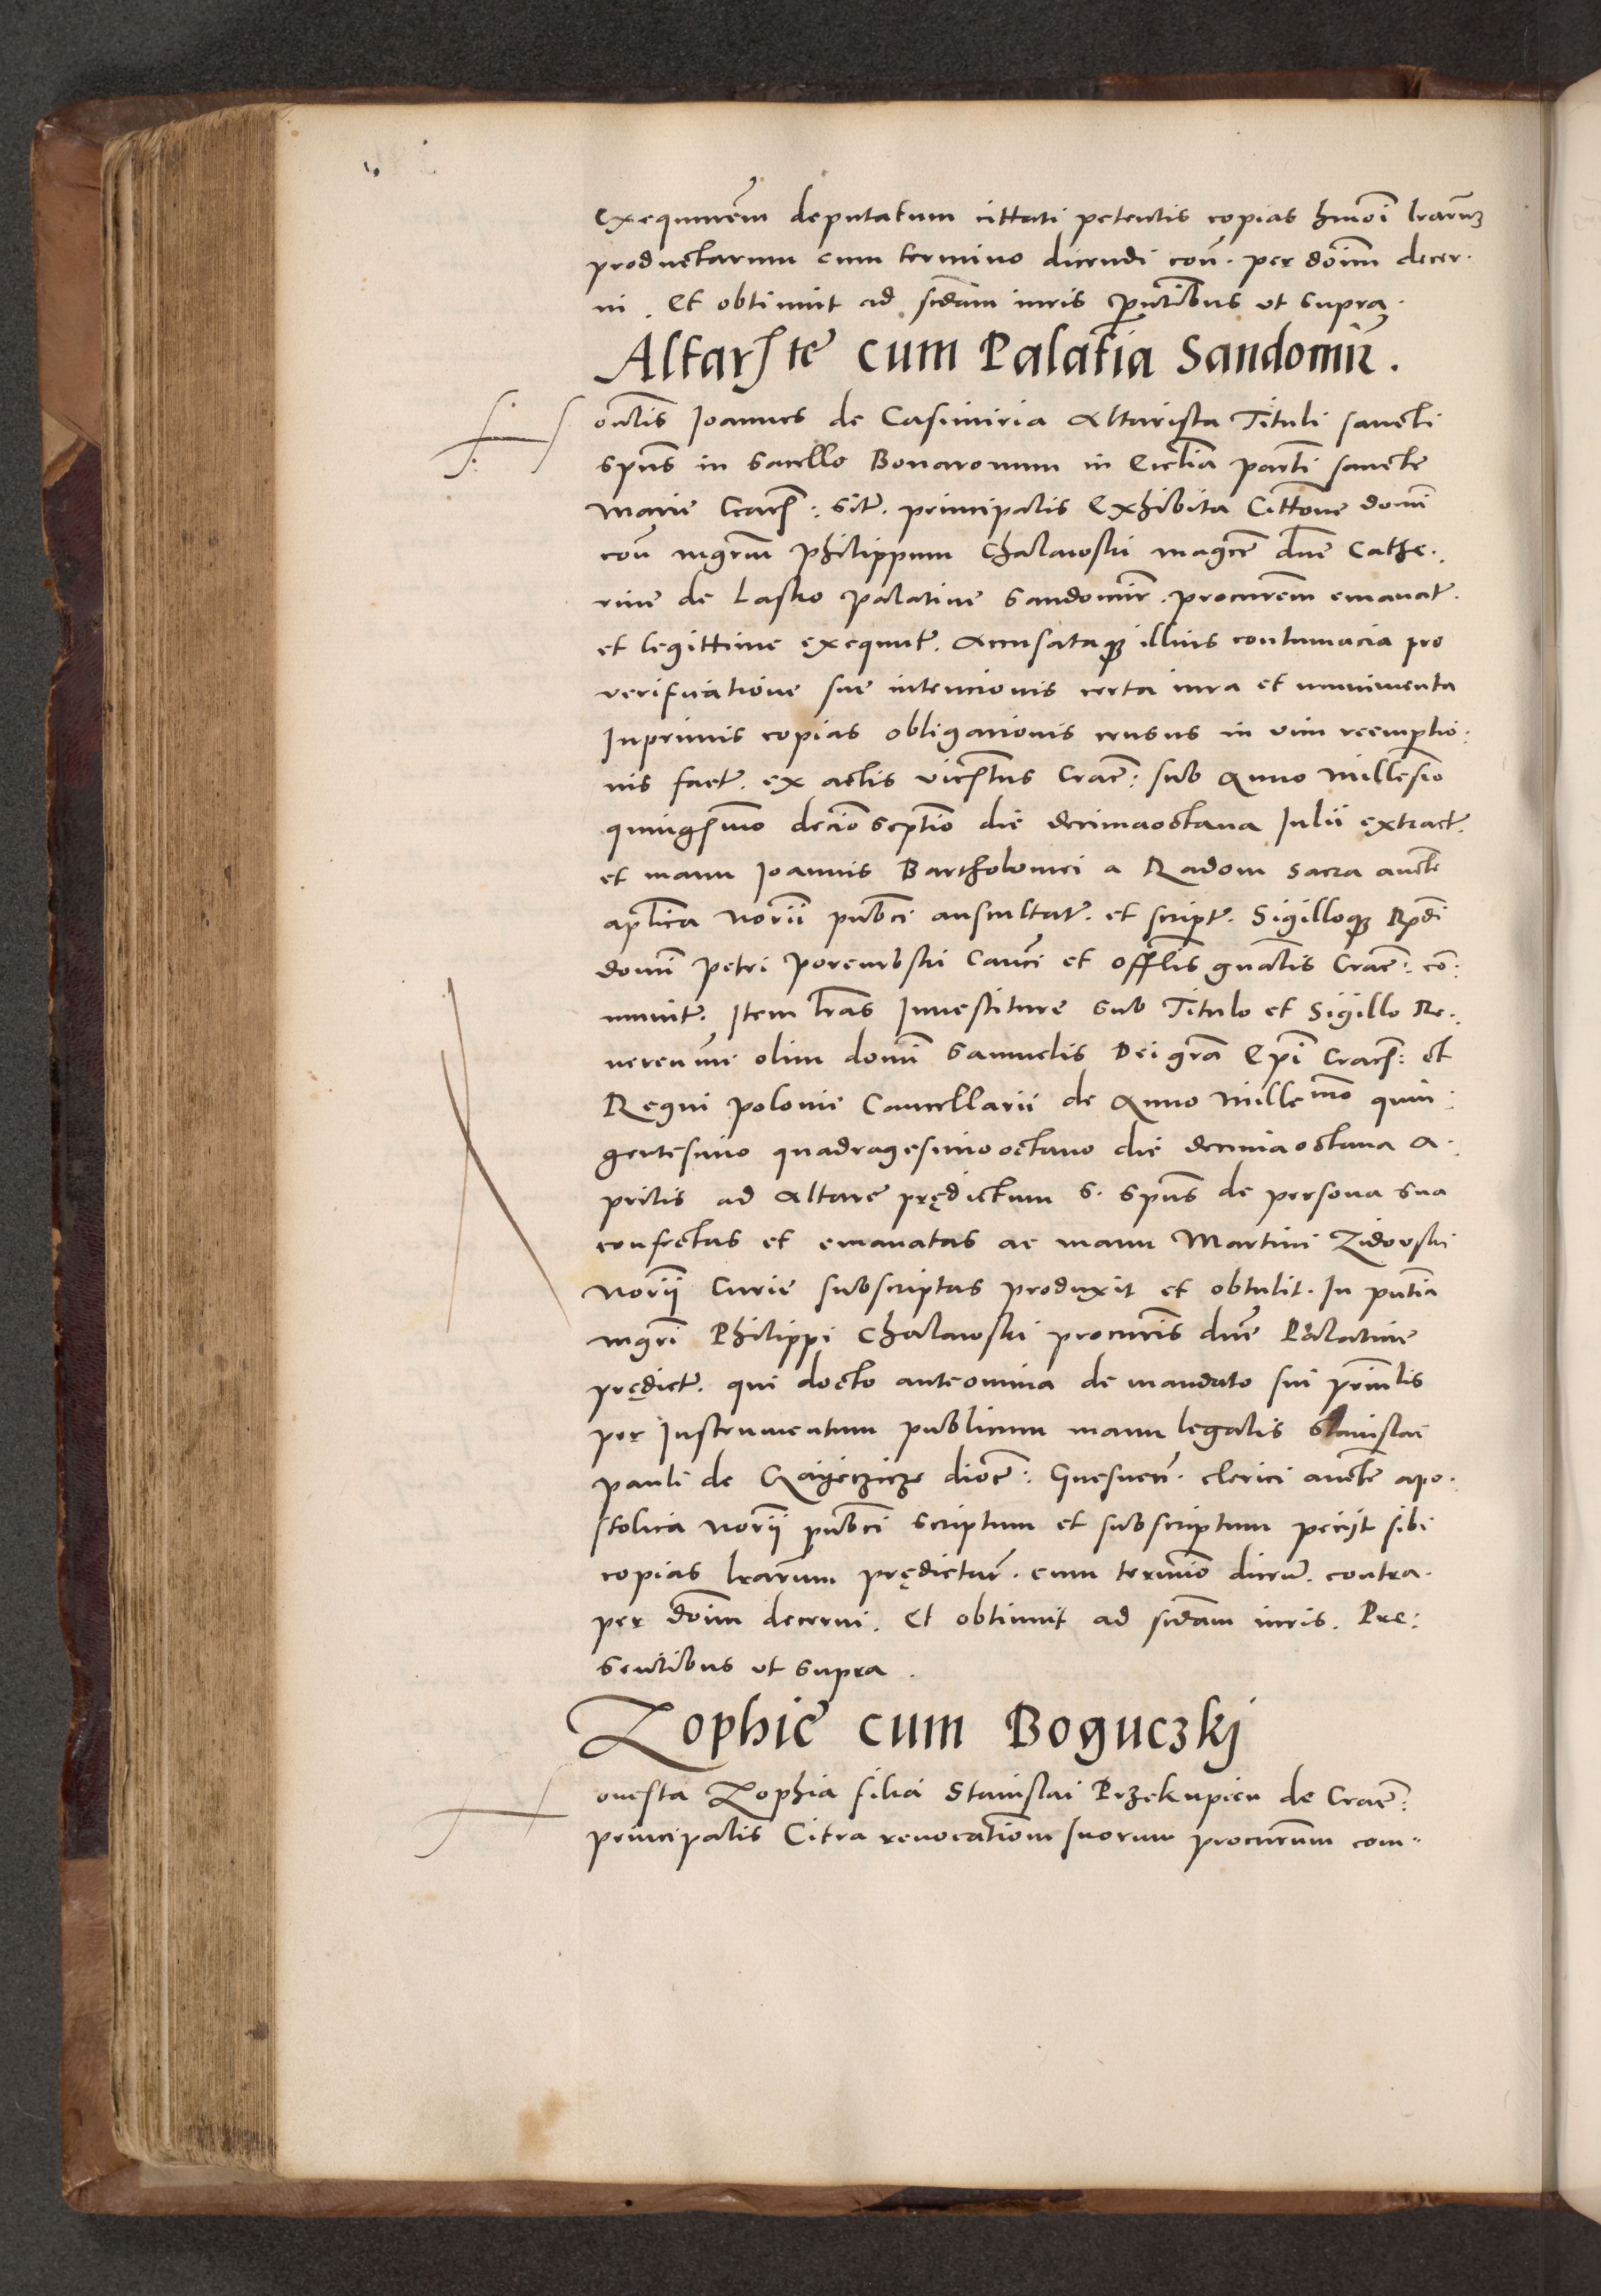 Exequutem̄ deputatum cittati petentis copias hm̄oi lrarūꝫ
productarum cum termino dicendi con̄. per dōim decer.
ni. Et obtinuit ad scdām iuris p̄ntibus ut supra.
Altarḥte cum Palatīa Sandomir̄.
H onēlis Joannes de Casimiria Altarista Tituli sancti
spūs in sacello Bonaronum in Ecclīa parlī sancte
Marie Craco͞: sitꝛ. principalis Exhibita Cittōne domī
con̄ mgr̄m Philippum Chalawski magce dn̄e Cathe:
rine de Lasko Palatine Sandomir̄. procurem̄ emanatꝛ.
et legittime exequutꝛ. Accusataqꝫ illius contumacia pro
verificatione sue intencionis certa iura et munimenta
Inprimis copias obligationis census in vim reemptio:
nis factꝛ. ex actis vicȓtus Crac̄: sub Anno millesīo
quingēmo decīo septīo die decimaoctava Julii extractꝛ.
et manu Joannis Bartholomei a Radom sacra aucte
aplica Norii pubci auscultatꝛ. et scriptꝛ. Sigilloqꝫ Rn̄di
domī Petri Porembski Canci et offlis gnalis Crac̄: co:
munitꝛ. Item lras Investiture sub Titulo et Sigillo Re:
verenme olim domī Samuelis Dei gra Epī Craco͞: et
Regni Polonie Cancellarii de Anno Millemo quin:
gentesimo quadragesimooctavo die decimaoctava A:
prilis ad Altare prędictum S. Spūs de persona sua
confectas et emanatas ac manu Martini Zidowski
Norii Curie subscriptas produxit et obtulit. In pn̄tia
mgri Philippi Chalawski procuris dn̄e Palatine
prędictꝛ. qui docto anteomnia de mandato sui prinlis
per Instrumentum publicum manu legalis Stanislai
Pauli de diōc̄: Gnesnen̄. clerici aucte apo.
stolica Norii pubci scriptum et subscriptum peciit sibi
copias lrarum prędictar̄. cum termio dicen̄. contra.
per dōim decerni. Et obtinuit ad scdām iuris. Pre:
sentibus ut supra.
Zophie cum Boguczkj
H onesta Zophia filia Stanislai Przekupien de Crac̄:
principalis Citra revocationem suorum procurum com"